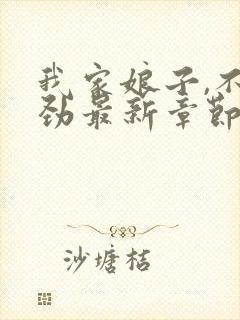 我家娘子,不
劲最新章节
沙塘桔